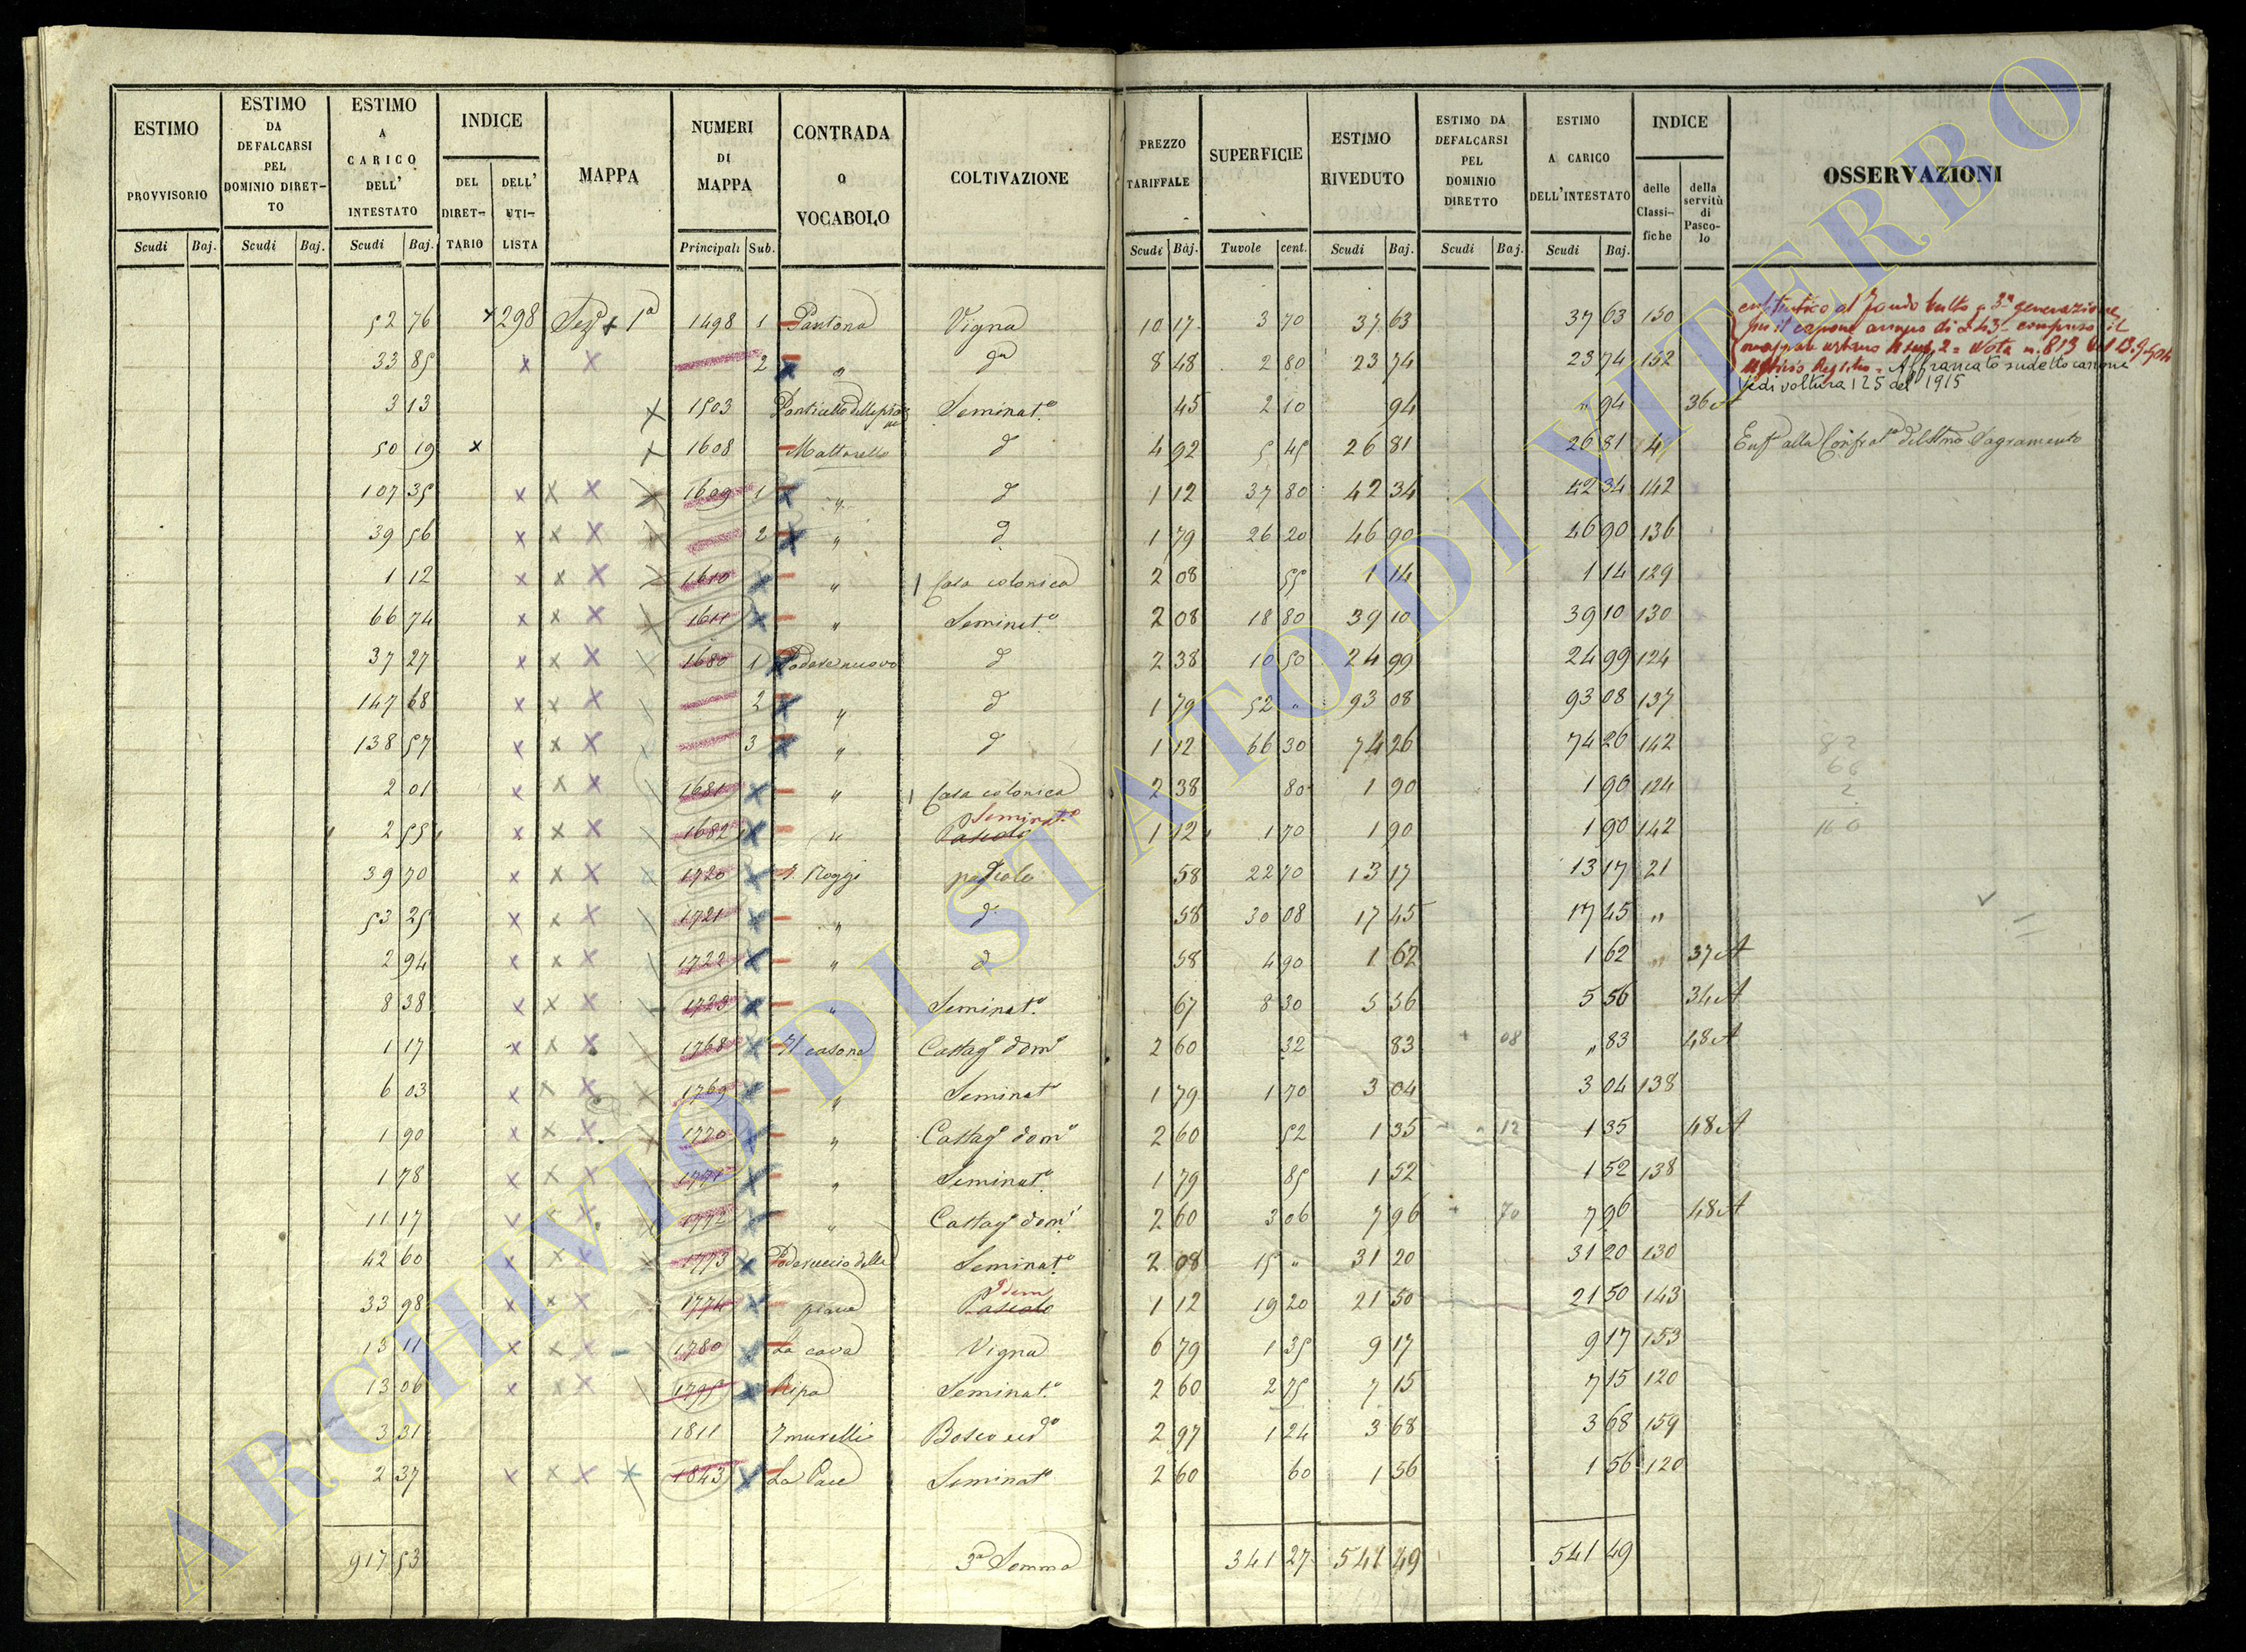 ESTIMO PROVVISORIO Scudi Baj.
ESTIMO DA DEFALCARSI PEL DOMINIO DIRET-TO Scudi Baj.
ESTIMO A CARICO DELL' INTESTATO Scudi Baj.
INDICE DEL DIRET-TARIO DELL' UTI-LISTA
MAPPA
NUMERI DI MAPPA Principali Sub.
CONTRADA O VOCABOLO
COLTIVAZIONE
PREZZO TARIFFALE Scudi Baj.
SUPERFICIE Tavole cent.
ESTIMO RIVEDUTO Scudi Baj.
ESTIMO DA DEFALCARSI PEL DOMINIO DIRETTO Scudi Baj.
ESTIMO A CARICO DELL'INTESTATO Scudi Baj.
INDICE delle Classi-fiche della servitù di Pasco-lo
OSSERVAZIONI
52 76 298 Sez. 1ª 1498 1 Pantona Vigna 10 17 3 70 37 63 37 63 150
33 85 2 " dª 8 48 2 80 23 74 23 74 152
3 13 1503 Seminat.º 45 2 10 94 " 94 36 A
50 19 x 1608 Mattarello d 4 92 5 45 26 81 26 81 4
107 35 1609 1 " d 1 12 37 80 42 34 42 34 142
39 56 2 " d 1 79 26 20 46 90 46 90 136
1 12 1610 " Casa colonica 2 08 55 1 14 1 14 129
66 74 1611 " Seminat.º 2 08 18 80 39 10 39 10 130
37 27 1680 1 Podere nuovo d 2 38 10 50 24 99 24 99 124
147 68 2 " d 1 79 52 " 93 08 93 08 137
138 57 3 " d 1 12 66 30 74 26 74 26 142
2 01 1681 " Casa colonica 2 38 80 1 90 1 90 124
2 55 1682 " Pascolo Seminat.º 1 12 1 70 1 90 1 90 142
39 70 1720 pascolo 58 22 70 13 17 13 17 21
53 25 1721 " d 58 30 08 17 45 17 45 "
2 94 1722 " d 58 4 90 1 62 1 62 " 37 A
8 38 1723 " Seminat.º 67 8 30 5 56 5 56 34 A
1 17 1768 Il casone Castagº domº 2 60 32 83 08 " 83 48 A
6 03 1769 " Seminat 1 79 1 70 3 04 3 04 138
1 90 1770 " Castagº domº 2 60 52 1 35 12 1 35 48 A
1 78 1771 " Seminat.º 1 79 85 1 52 1 52 138
11 17 1772 " Castagº domº 2 60 3 06 7 96 70 7 96 48 A
42 60 1773 Poderuccio della Seminat.º 2 08 15 " 31 20 31 20 130
33 98 1774 pieve Pascolo dem 1 12 19 20 21 50 21 50 143
13 11 1780 La cava Vigna 6 79 1 35 9 17 9 17 153
13 06 1795 Ripa Seminat.º 2 60 2 75 7 15 7 15 120
3 31 1811 I murelli Bosco ced° 2 97 1 24 3 68 3 68 159
2 37 1843 La Pace Seminatº 2 60 60 1 56 1 56 120
917 53 3ª Somma 341 27 541 49 541 49
Affrancato sudetto canone
Vedi voltura 125 del 1915
Enf. alla Confratª del SSmo Sagramento
ARCHIVIO DI STATO DI VITERBO